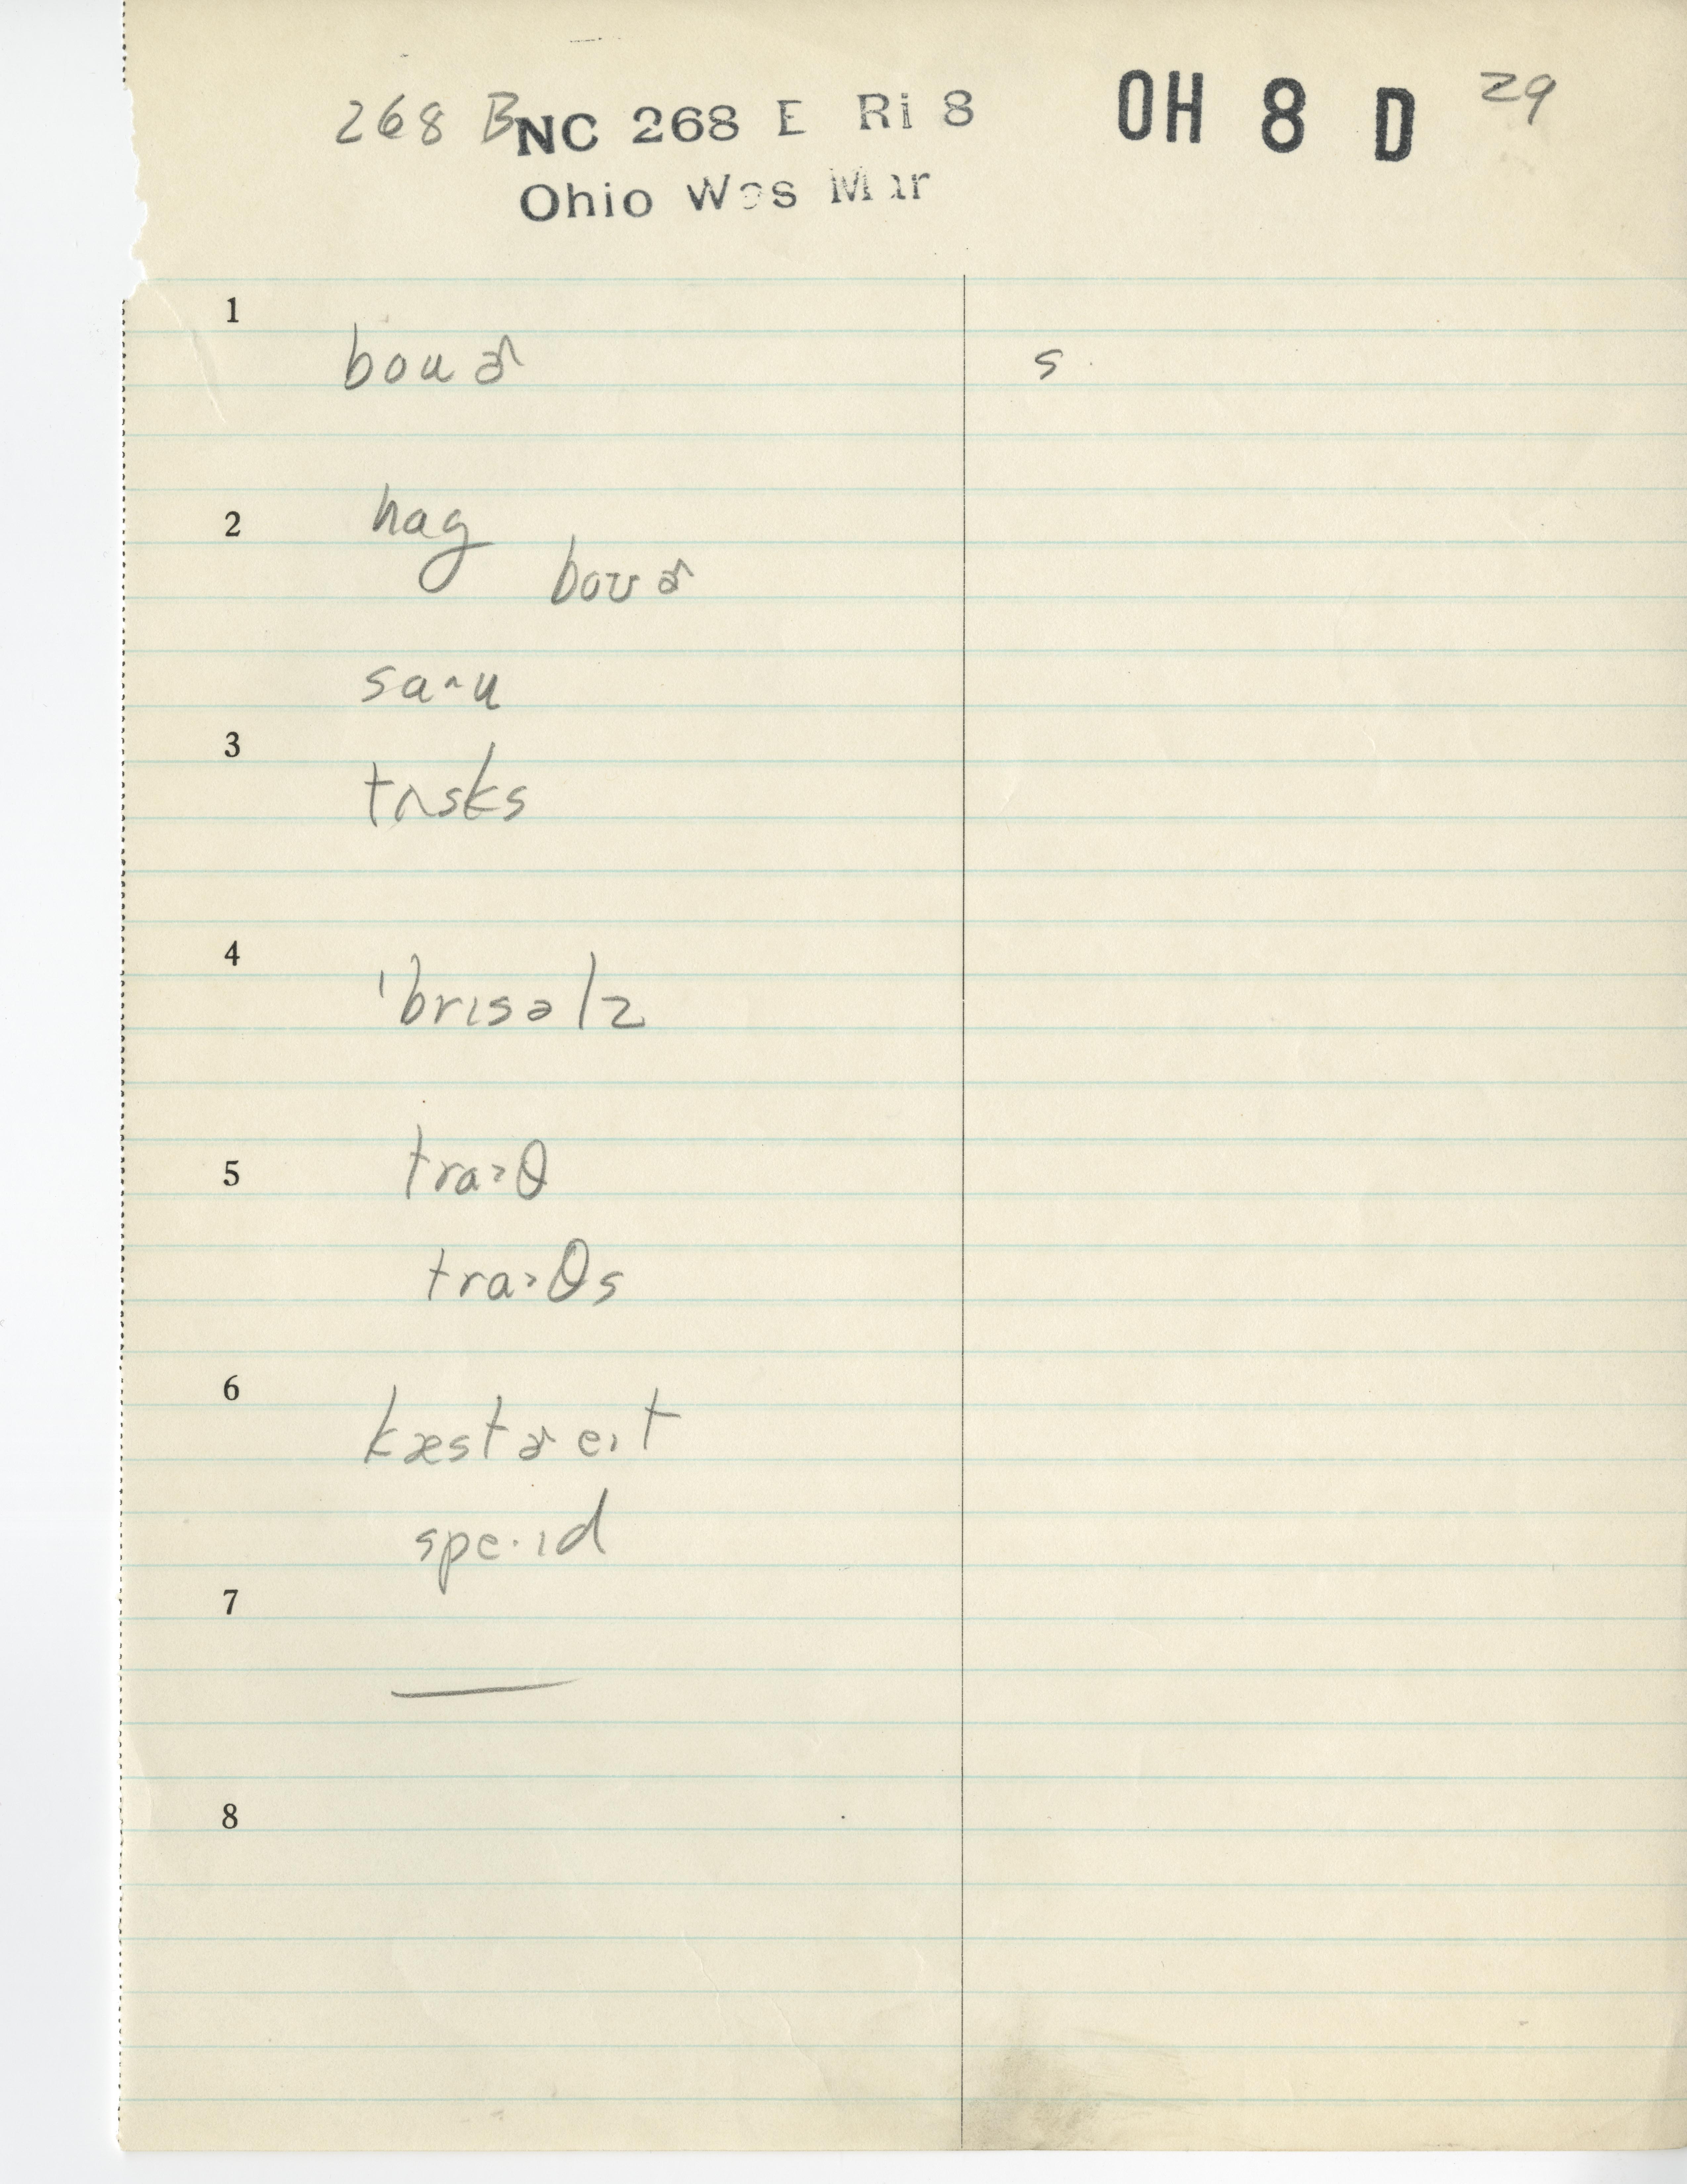 268 B NC 268 E Ri 8 OH 8 D 29
Ohio Wes Mar
1
bouɚ s
2 hag
bouɚ
saˑu
3
tʌsks
4
ˈbrɪsəlz
5 traˑθ
traˑθs
6
kæstɚeˑt
speˑɪd
7
—
8